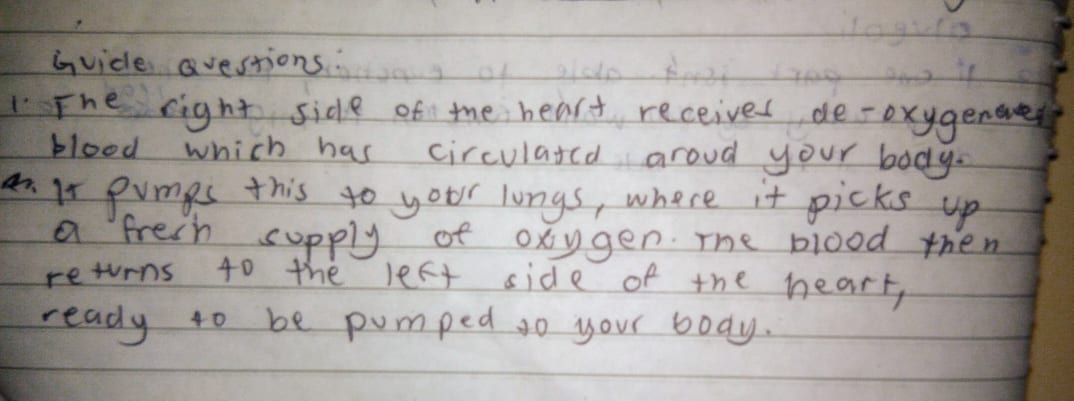 Guide Questions:
1. The right side of the heart receives de-oxygenated
blood which has circulated aroud your body.
It pumps this to your lungs, where it picks up
a fresh supply of oxygen. The blood then
returns to the left side of the heart,
ready to be pumped to your body.